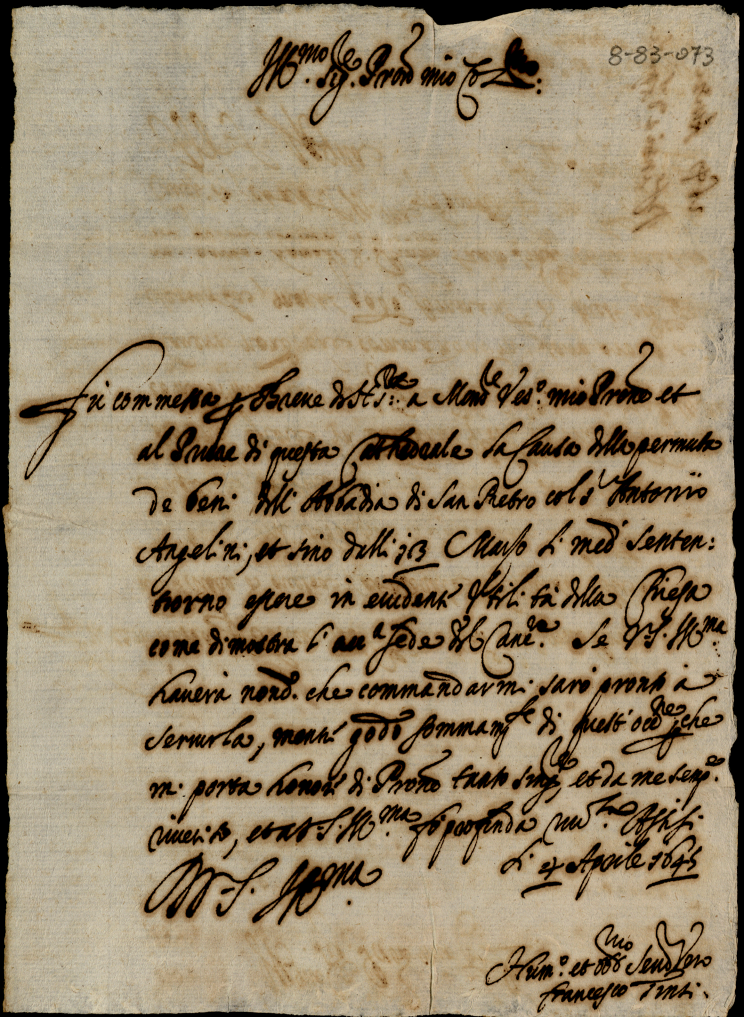 8-83-073
Ill.mo Sig.re Pron mio Col.mo
Fù commessa p Breve di S. S.tà a Mons.re Ves.o mio Prone et
al Priore di questa Cathedrale la Causa della permuta
de beni dell' Abbadia di San Pietro col s.r Antonio
Angelini, et sino dalli 13 Marzo li med.i senten:
tiorno essere in evidente Utilità della Chiesa
come dimostra l' acc.a fede del Canc.re. Se V. S. Ill.ma
haverà nond. che commandarmi sarò pronto à
servirla, mentre godo sommam.te di quest' occ.ne che
mi porta honore di Prone tanto sing.re, et da me semp.e
riverito, et a V. S. Ill.ma fò profonda riv.za Assisi
li 4 Aprile 1645
D V. S. Ill.ma
Hum.o et obb.mo Serv.re Vero
Francesco Tinti.